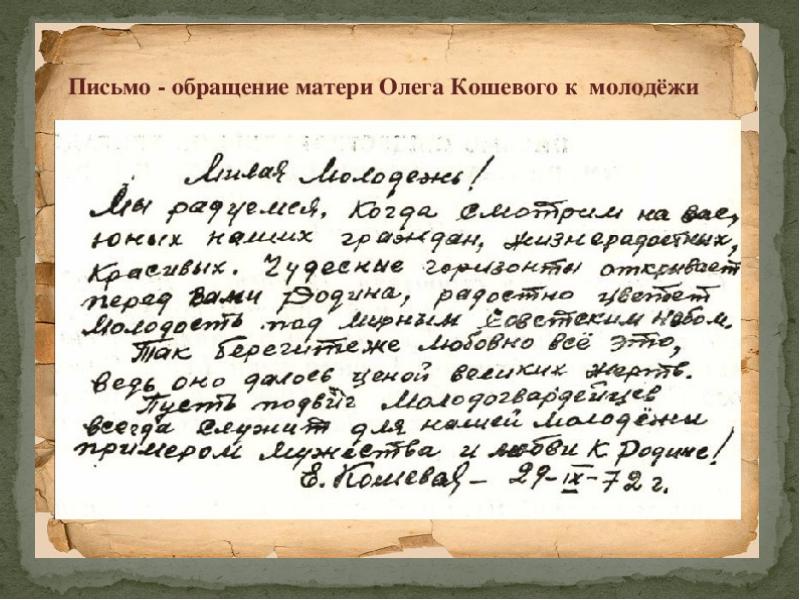 Письмо - обращение матери Олега Кошевого к молодёжи
Милая Молодежь!
Мы радуемся, когда смотрим на вас,
юных наших граждан, жизнерадостных,
красивых. Чудесные горизонты открывает
перед вами Родина, радостно цветет
молодость под мирным Советским небом.
Так берегите же любовно всё это,
ведь оно далось ценой великих жертв.
Пусть подвиг Молодогвардейцев
всегда служит для нашей молодёжы
примером мужества и любви к Родине!
Е. Кошевая – 29-IX-72 г.